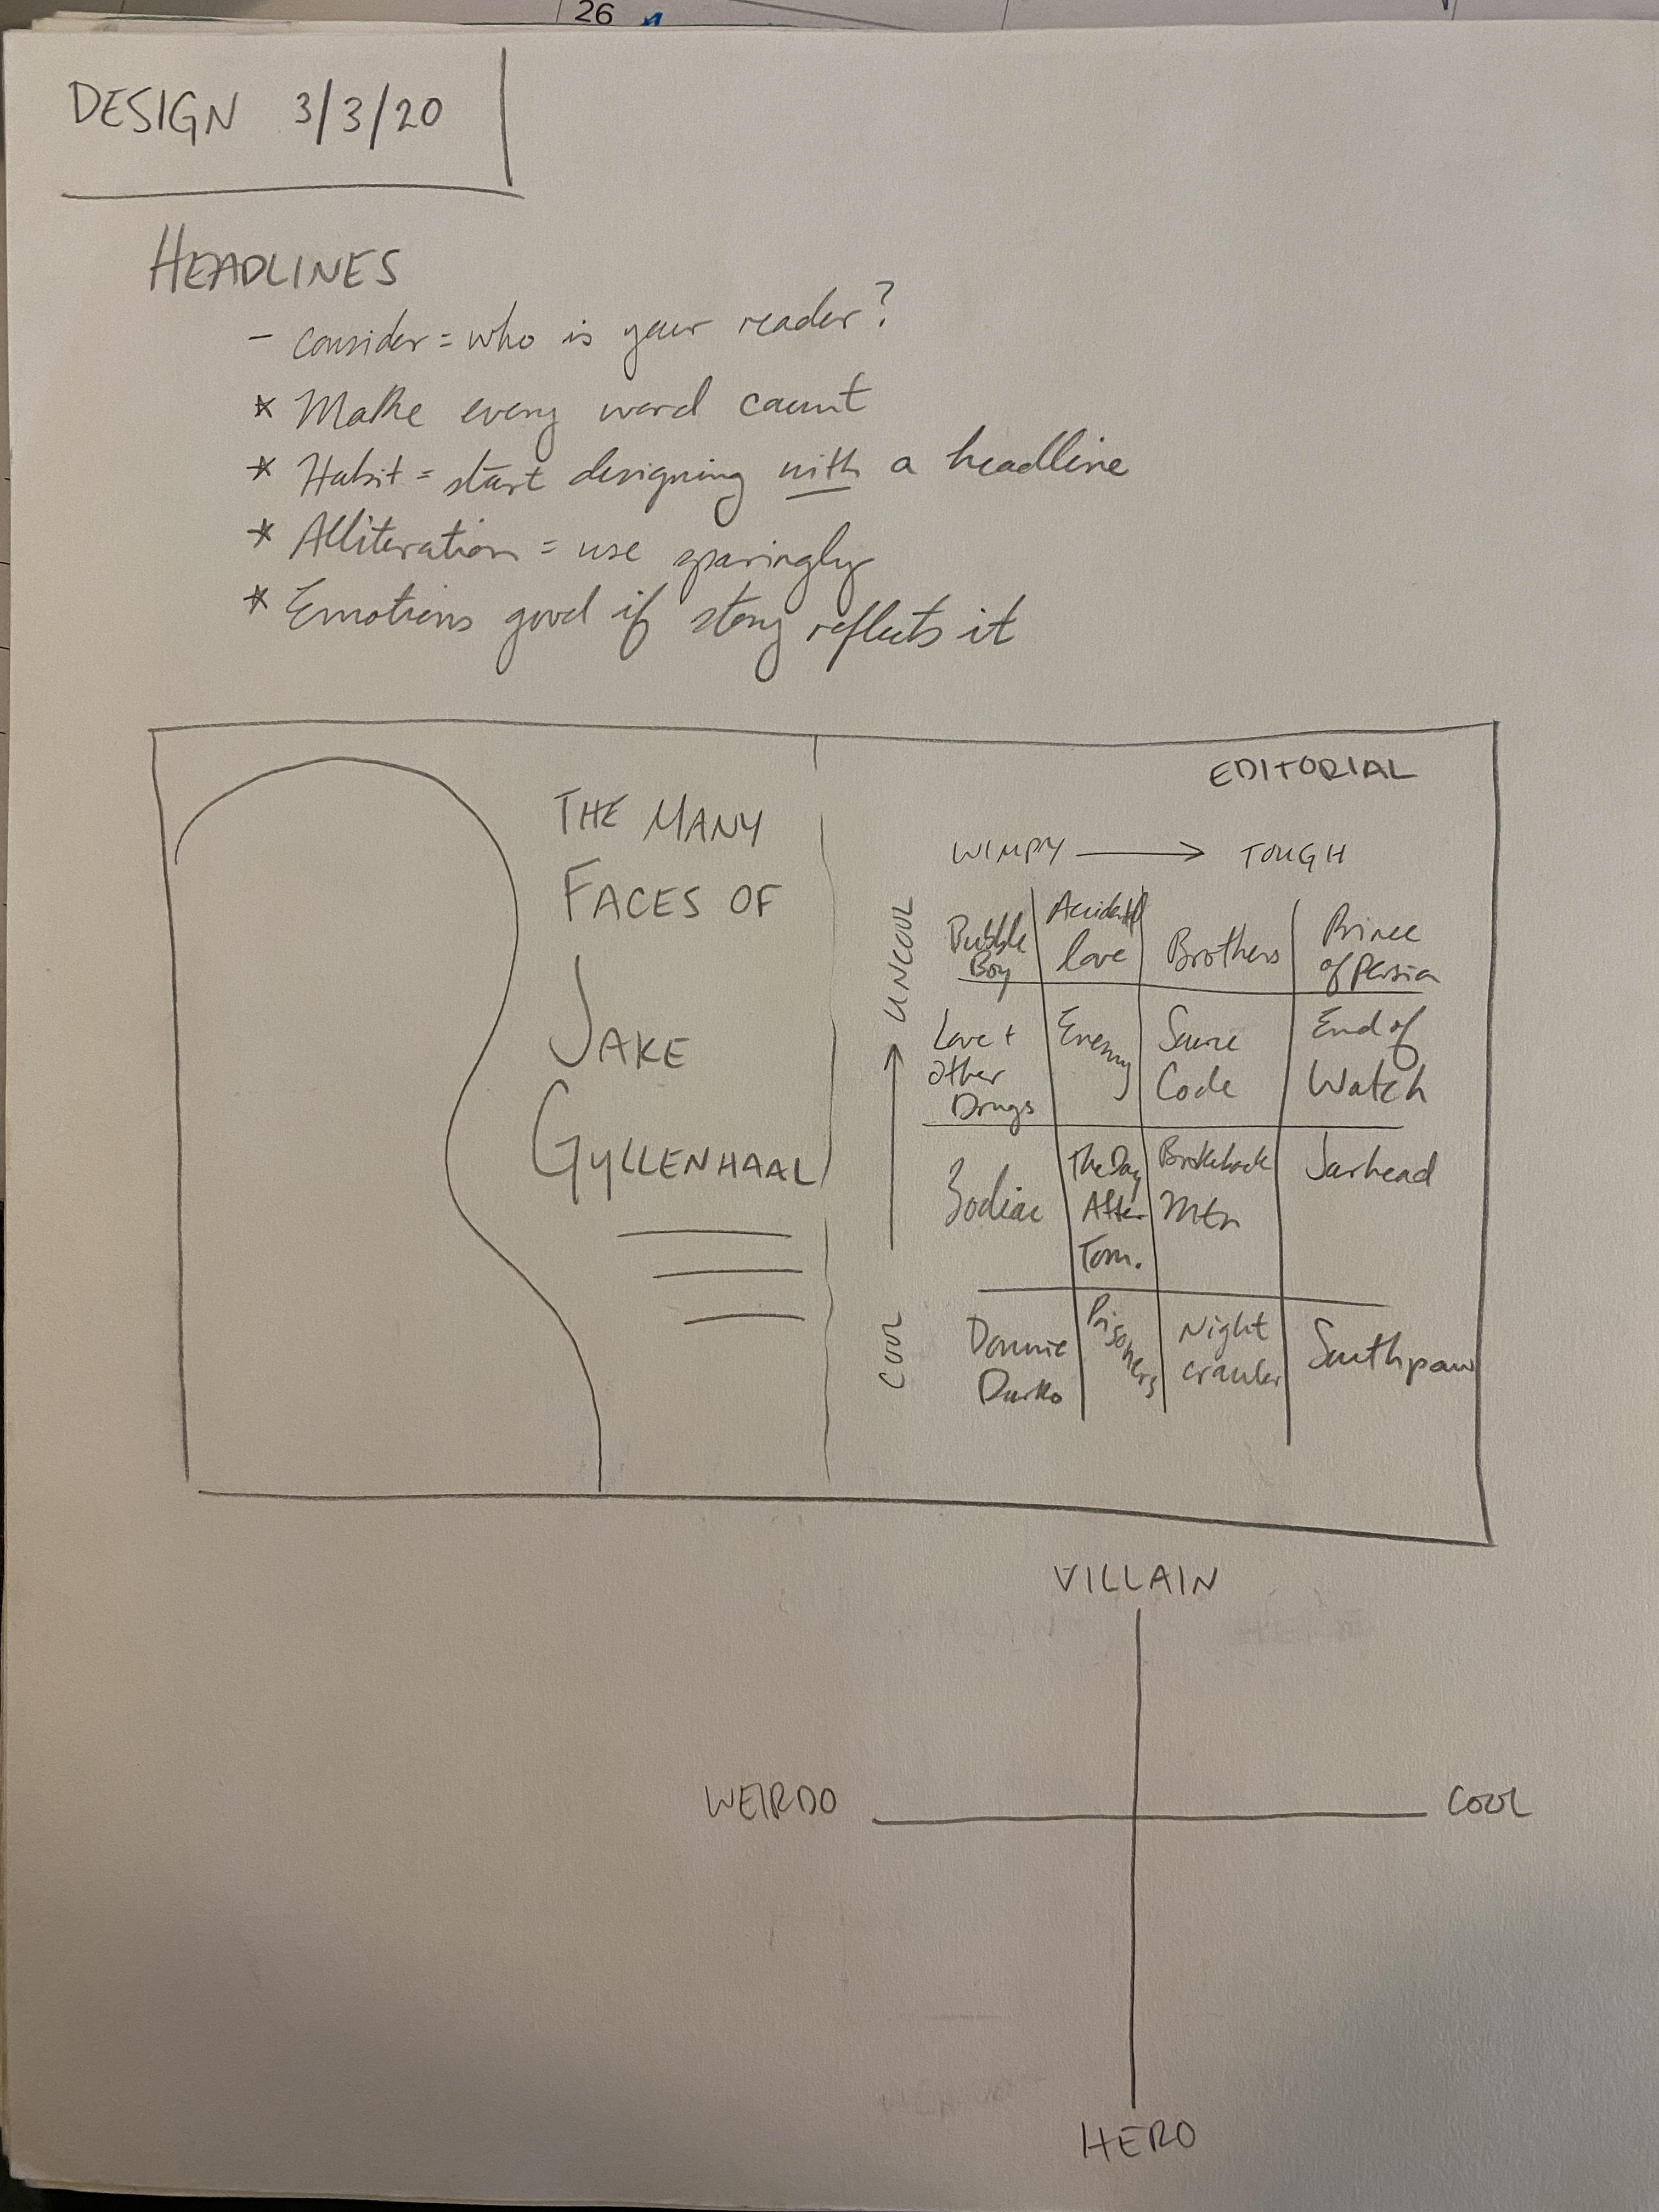 26
DESIGN 3/3/20
HEADLINES
- consider = who is your reader?
* Make every word count
* Habit = start designing with a headline
* Alliteration = use sparingly
* Emotions good if story reflects it
THE MANY
FACES OF
JAKE
GYLLENHAAL
EDITORIAL
WIMPY → TOUGH
COOL → UNCOOL
Bubble Boy
Accidental love
Brothers
Prince of Persia
Love + other Drugs
Enemy
Source Code
End of Watch
Zodiac
The Day After Tom.
Brokeback Mtn
Jarhead
Donnie Darko
Prisoners
Night crawler
Southpaw
VILLAIN
WEIRDO
COOL
HERO